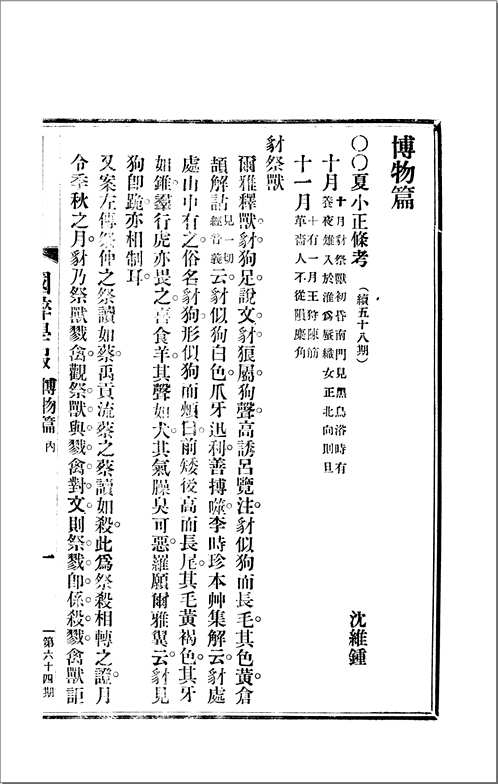 博物篇
〇〇夏小正條考（續五十八期）　沈維鍾
十月十月豺祭獸初昏南門見黑鳥浴時有養夜雉入於淮爲蜃織女正北向則旦
十一月十有一月王狩陳筋革嗇人不從隕麋角
豺祭獸
爾雅釋獸。豺狗足。說文。豺狼屬狗聲。高誘呂覽注。豺似狗而長毛。其色黃。倉
頡解詁見一切經音義云。豺似狗白色。爪牙迅利。善搏噬。李時珍本艸集解云。豺處
處山中有之。俗名豺狗。形似狗而頗白。前矮後高而長尾。其毛黃褐色。其牙
如錐。羣行虎亦畏之。喜食羊。其聲如犬。其氣臊臭可惡。羅願爾雅翼云。豺見
狗卽跪。亦相制耳。
又案左傳祭仲之祭。讀如蔡。禹貢流蔡之蔡。讀如殺。此爲祭殺相轉之證。月
令季秋之月。豺乃祭獸戮禽。觀祭獸與戮禽對文。則祭戮卽係殺戮。禽獸詎
國粹學報　博物篇　內　一　第六十四期